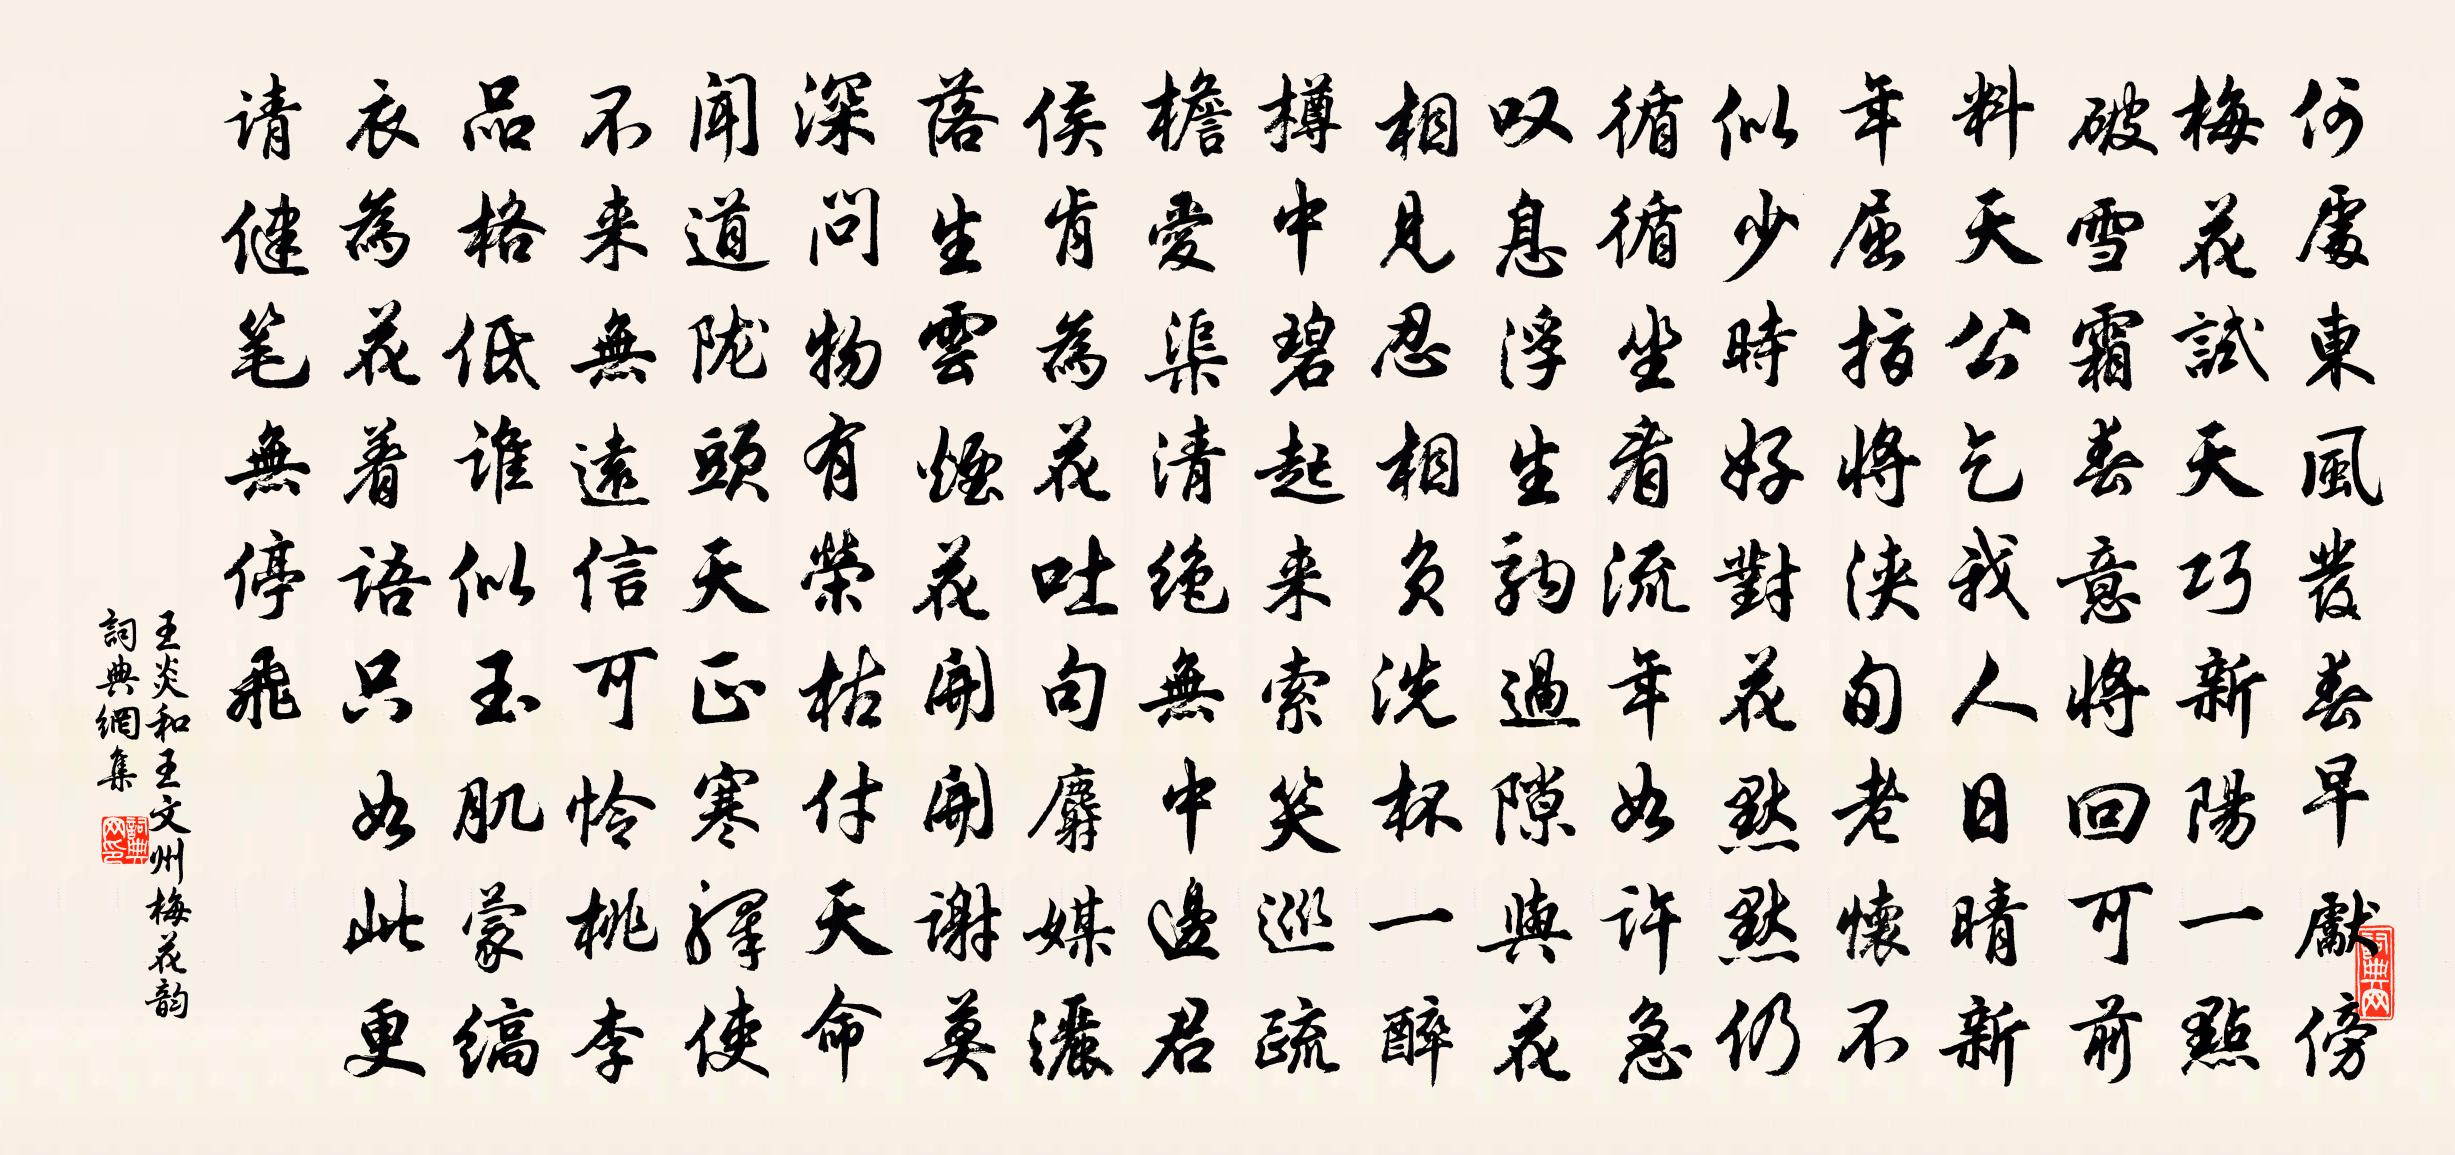 何處東風發春早獻傍
梅花試天巧新陽一點
破雪霜春意將回可前
料天公乞我人日晴新
年屈指將浹旬老懷不
似少時好對花默默仍
循循坐看流年如许急
叹息浮生驹過隙與花
相見忍相負洗杯一醉
樽中碧起来索笑巡疏
檐愛渠清绝無中邊君
侯肯為花吐句麝媒灑
落生雲煙花開開謝莫
深问物有榮枯付天命
闻道陇頭天正寒驛使
不来無遠信可怜桃李
品格低谁似玉肌蒙缟
衣為花着语只如此更
请健笔無停飛
王炎和王文州梅花韵
詞典網集
詞典网